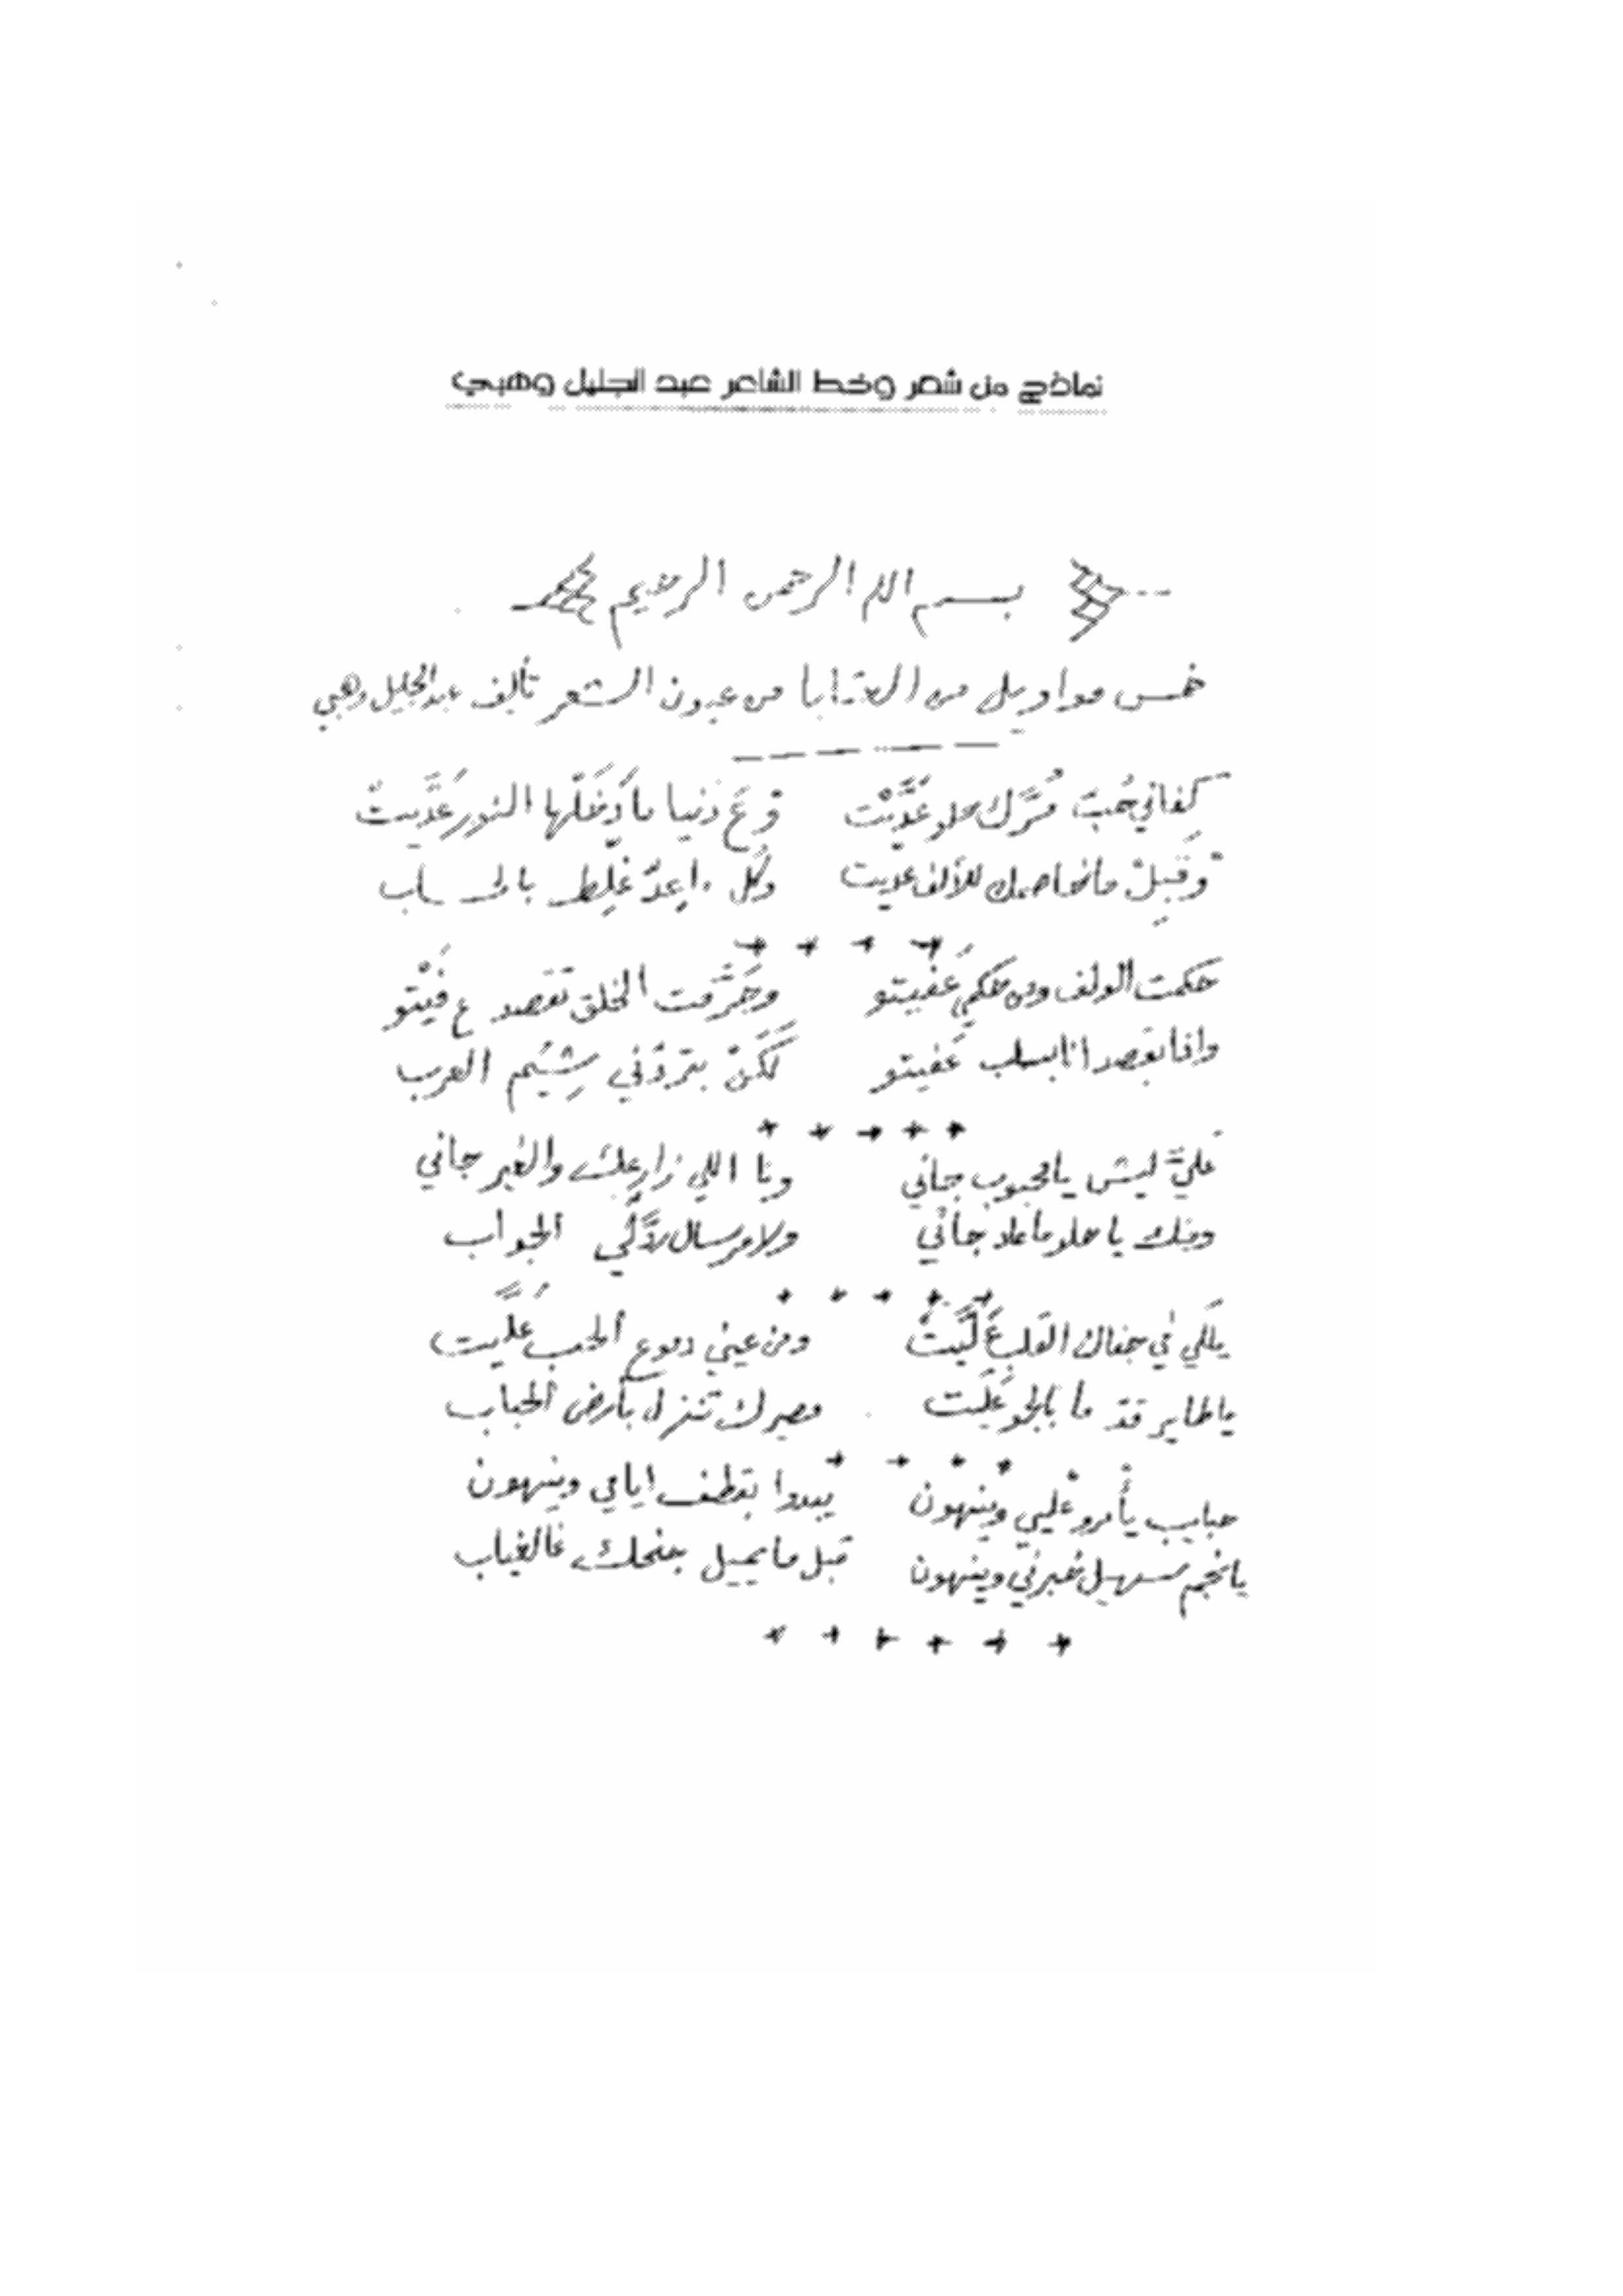 نماذج من شعر وخط الشاعر عبد الجليل وهبي
بسم الله الرحمن الرحيم
خمس مواويل من العتابا من عيون الشعر تأليف عبد الجليل وهبي
كفاني حُبّ مُرّك حلو عَدَّيْت وع دنيا ما دَخَلْها النور عَدّيتْ
وقبلْ ما خاصمك للألف عديت وكل ما عِدّ غلِط بالحساب
حكمت الولف ومن حكمي عفيتو وحرَّمت الخلق تقصد ع فيتو
وانا بقصد انا لباب عفيتو لَكَنْ بتردّني شِيَم العرب
عليّ ليش يا محبوب جاني ونا اللي زارعك والغير جاني
ومنك يا حلو ما عاد جاني ولا مرسال ردَّلي الجواب
يللي في جفاك القلب عَلَّيتْ ومن عيني دموع الحب عَلَّيت
يا طاير قدّ ما بالجو عَلّيت مصيرك تنزل بأرض الحباب
حبايب يأمرو عليي وينهون يبدوا بقطف ايامي وينهون
يا نجم سهيل خبرني وينهون قبل ما يميل جنحك عالغياب